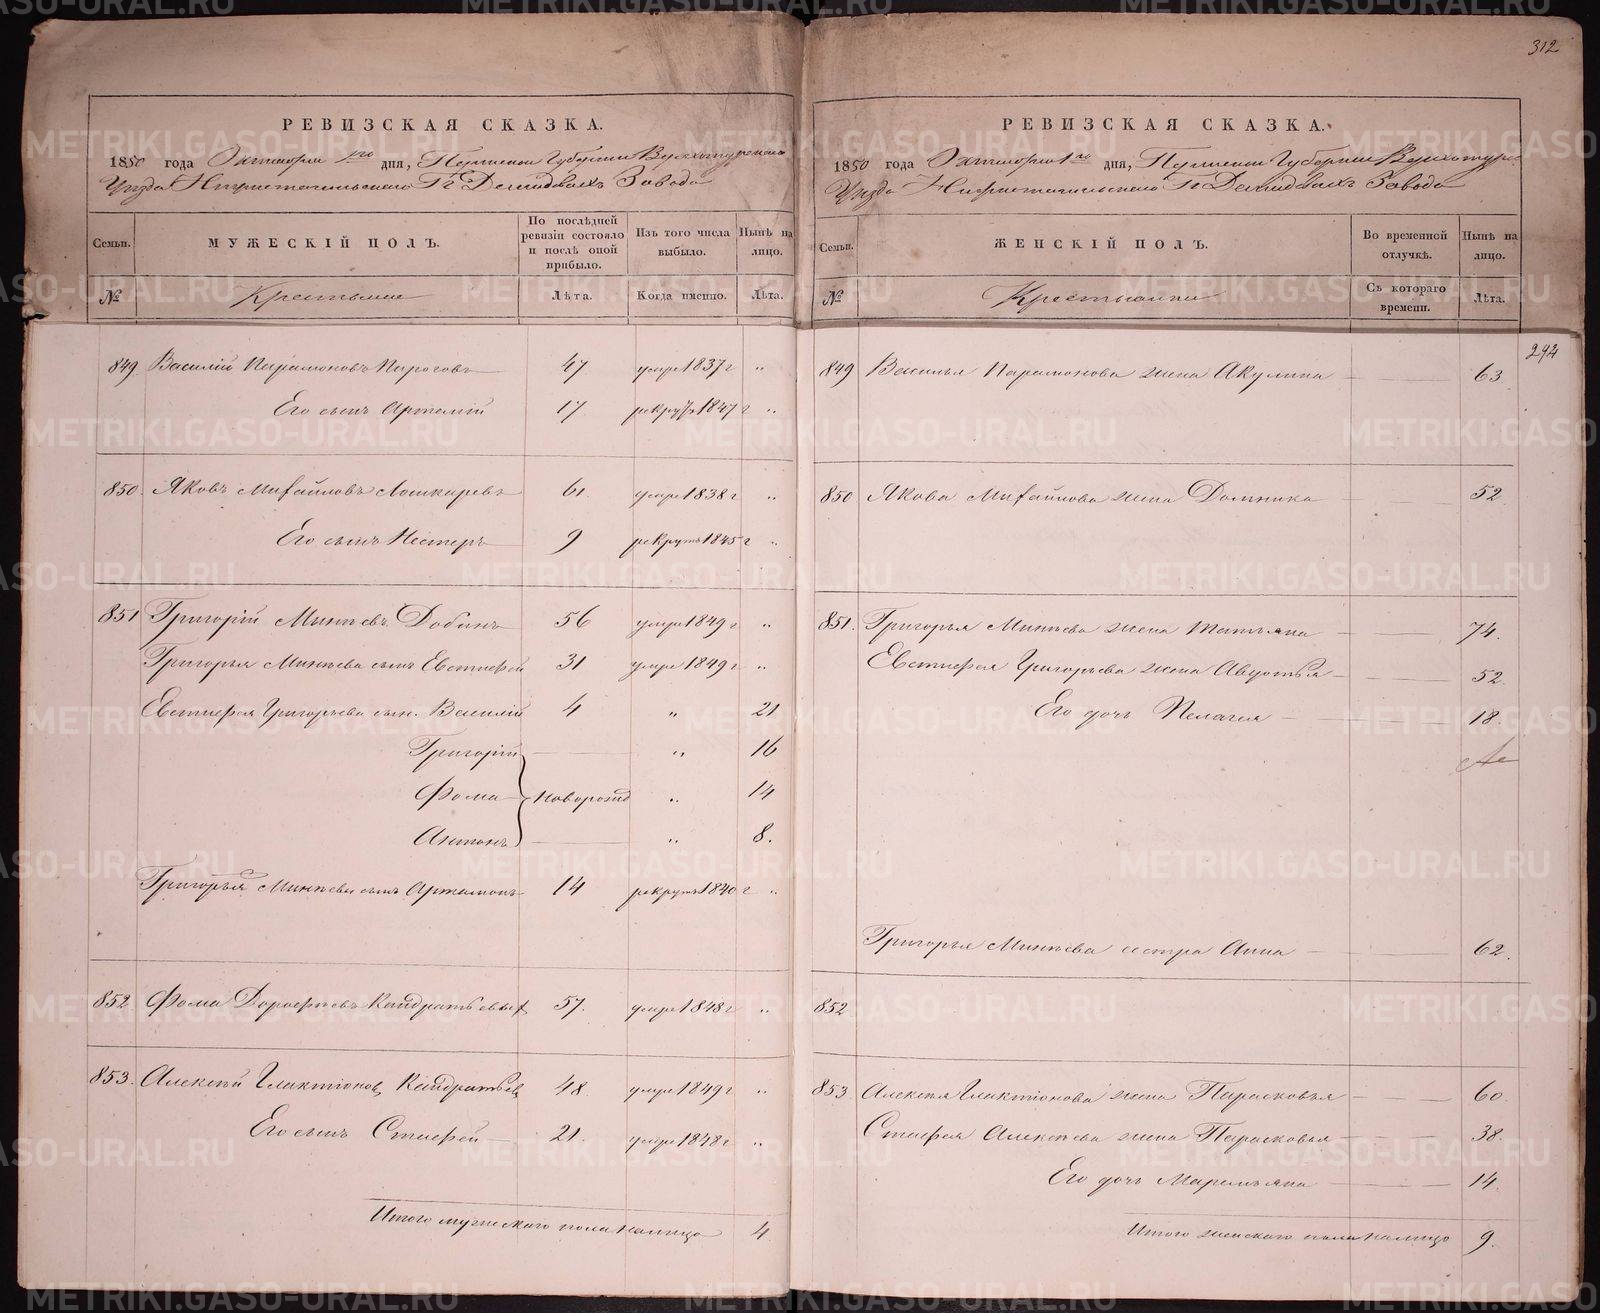 312
РЕВИЗСКАЯ СКАЗКА.
1850 года Октября 1го дня, Пермской Губернии Верхотурскаго
Уѣзда Нижнетагильскаго Гг Демидовыхъ Завода
Семьи.
МУЖЕСКІЙ ПОЛЪ.
По послѣдней ревизіи состояло и послѣ оной прибыло.
Изъ того числа выбыло.
Нынѣ на лицо.
№
Крестьяне
Лѣта.
Когда именно.
Лѣта.
849 Василій Парамоновъ Пироговъ 47 умре 1837 г "
Его сынъ Артемій 17 рекрутъ 1847 г "
850. Яковъ Михайловъ Лошкаревъ 61. умре 1838 г "
Его сынъ Нестеръ 9 рекрутъ 1845 г "
851 Григорій Минѣевъ Добинъ 56 умре 1849 г "
Григорья Минѣева сынъ Евстифей 31 умре 1849 г "
Евстифея Григорьева сын. Василій 4 " 21
Григорій " 16
Фома новорожд " 14
Антонъ " 8.
Григорья Минѣева сынъ Артамонъ 14 рекрутъ 1840 г "
852. Фома Дорофѣевъ Кондратьевыхъ 57. умре 1848 г "
853. Алексѣй Глактіоновъ Кондратьевъ 48 умре 1849 г "
Его сынъ Стефей 21. умре 1848 г "
Итого мужескаго пола налицо 4
РЕВИЗСКАЯ СКАЗКА.
1850 года Октября 1го дня, Пермской Губерніи Верхотурс.
Уѣзда Нижнетагильскаго Гг Демидовыхъ Завода
Семьи.
ЖЕНСКІЙ ПОЛЪ.
Во временной отлучкѣ.
Нынѣ на лицо.
№
Крестьянки
Съ котораго времени.
Лѣта.
292
849 Василья Парамонова жена Акулина 63
850 Якова Михайлова жена Домника 52
851. Григорья Минѣева жена Татьяна 74.
Евстифея Григорьева жена Авдотья 52
Его дочь Пелагея 18.
Григорья Минѣева сестра Анна 62.
852
853 Алексѣя Глактіонова жена Парасковья 60
Стефея Алексѣева жена Парасковья 38.
Его дочь Маремьяна 14.
Итого женскаго пола налицо 9.
METRIKI.GASO-URAL.RU